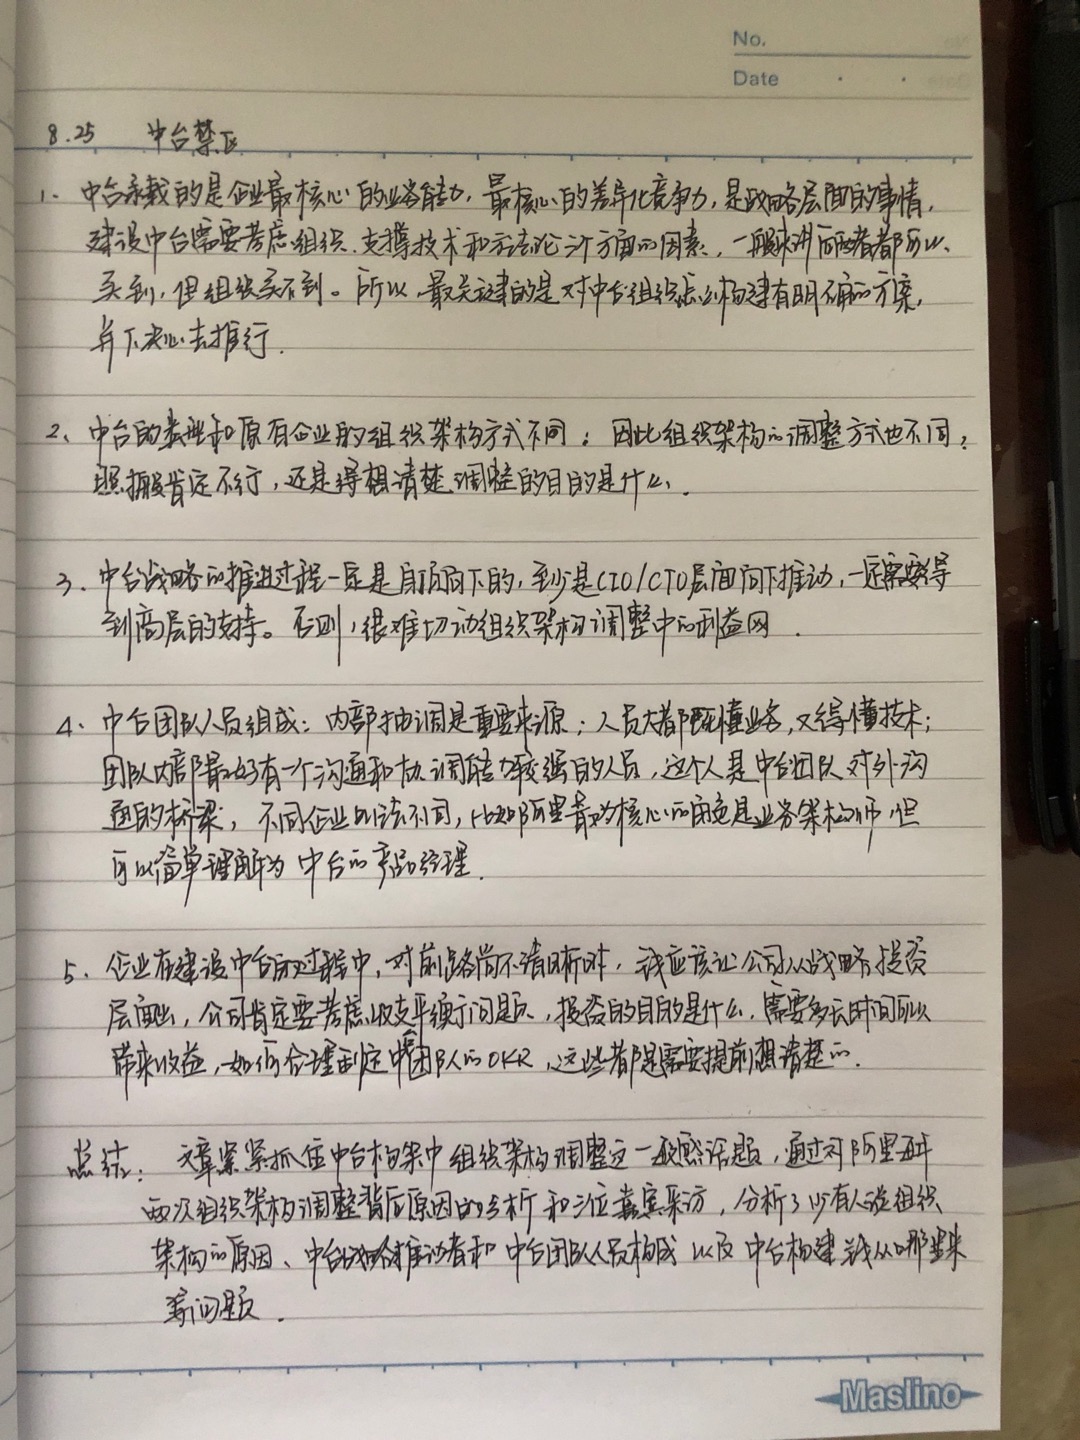 No.
Date
8.25 中台禁区
1、中台承载的是企业最核心的业务能力，最核心的差异化竞争力，是战略层面的事情，
建设中台需要考虑组织、支撑技术和方法论三个方面的因素，一般来讲后两者都可以
买到，但组织买不到。所以，最关键的是对中台组织架构构建有明确的方案，
并下决心去推行.
2、中台的类型和原有企业的组织架构方式不同；因此组织架构的调整方式也不同；
照搬肯定不行，还是得想清楚调整的目的是什么.
3、中台战略的推进过程一定是自顶向下的，至少是CIO/CTO层面向下推动，一定需要得
到高层的支持。否则，很难切动组织架构调整中的利益网.
4、中台团队人员组成：内部抽调是重要来源；人员大都既懂业务，又得懂技术；
团队内部最好有一个沟通和协调能力较强的人员，这个人是中台团队对外沟
通的桥梁，不同企业叫法不同，比如阿里最为核心的角色是业务架构师，但
可以简单理解为中台的产品经理.
5、企业在建设中台的过程中，对前路尚不清晰时，钱应该让公司从战略投资
层面出，公司肯定要考虑收支平衡问题，投资的目的是什么，需要多长时间可以
带来收益，如何合理制定中台团队的OKR，这些都是需要提前想清楚的.
总结：文章紧紧抓住中台构架中组织架构调整这一敏感话题，通过对阿里每
两次组织架构调整背后原因的分析和三位嘉宾采访，分析了少有人谈组织
架构的原因、中台战略推动者和中台团队人员构成以及中台构建钱从哪里来
等问题.
Maslino